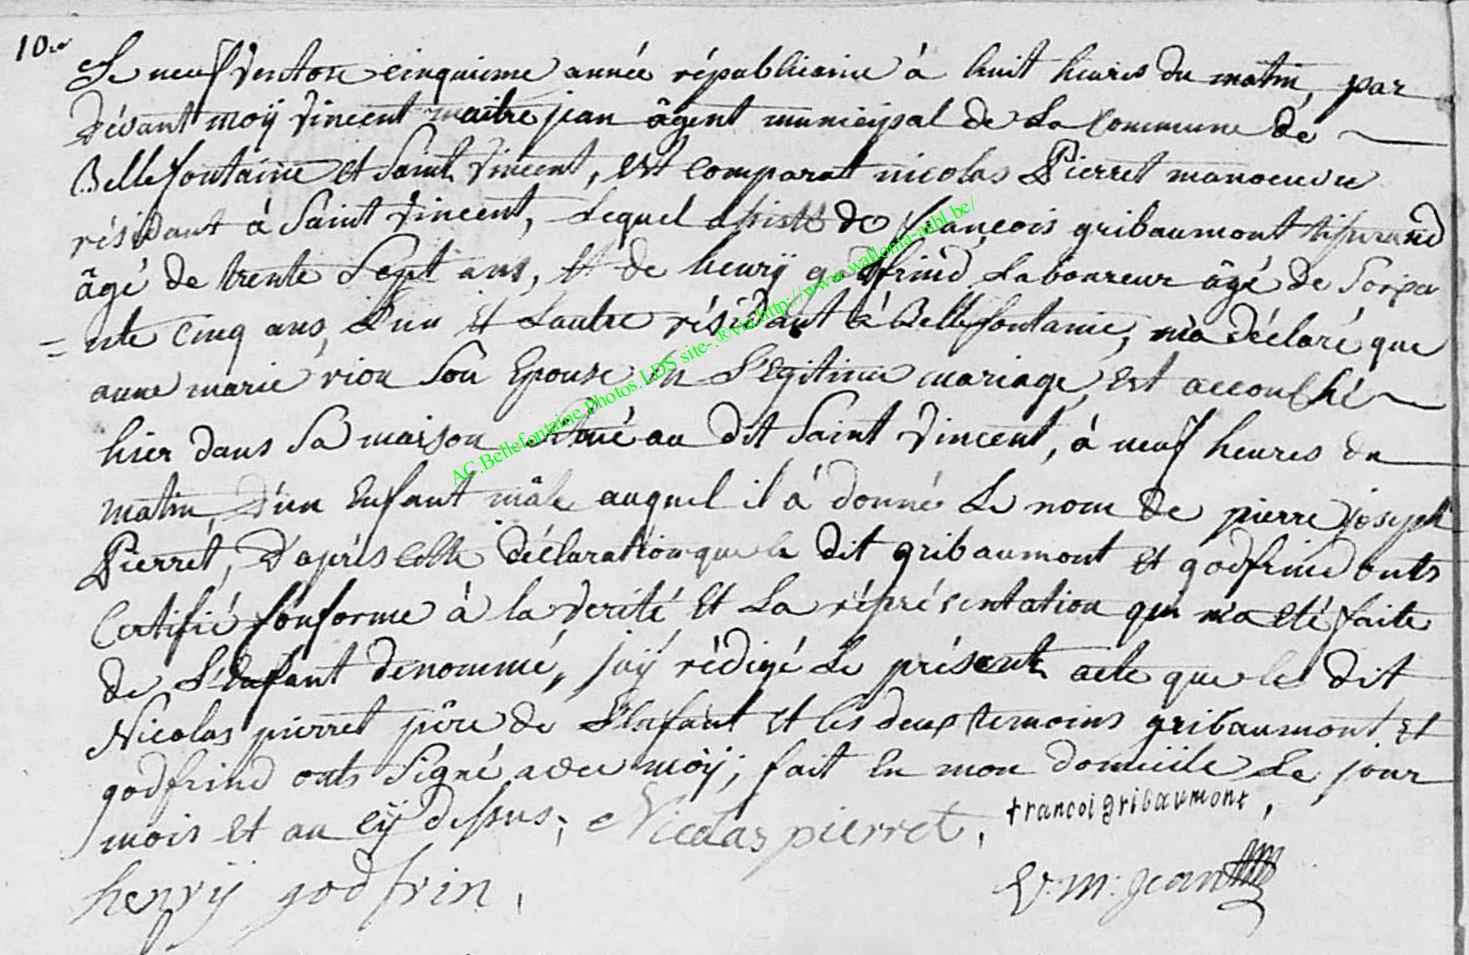 10.e
Le neuf ventose cinquieme année républicaine à huit heures du matin, par
dévant moÿ vincent maitrejean âgent municipal de La Commune de
Bellefontaine et Saint Vincent, est comparut nicolas Pierret manoeuvre
résidant à Saint Vincent, Lequel assisté de francois gribaumont tisserand
âgé de trente Sept ans, et de henrÿ godfrind Laboureur âgé de Soixa
= nte cinq ans, L'un et Lautre résidant à Bellefontaine, m'a déclaré que
anne marie rion Son Epouse en Légitime mariage, est accouché
hier dans Sa maison Situé au dit Saint Vincent, à neuf heures du
matin, d'un Enfant mâle auquel il à donné Le nom de pierre joseph
Pierret, d'aprés cette déclaration que le dit gribaumont et godfrind onts
Certifié Conforme à la verité et La réprésentation qui m'a eté faite
de L'enfant denommé, j'aÿ rédigé Le présent acte que le dit
Nicolas pierret pére de L'enfant et les deux temoins gribaumont et
godfrind onts Signé avec moÿ; fait en mon domicile Le jour
mois et an cÿ dessus;
Nicolas pierret,
francoi gribaumont,
henrÿ godfrin,
V. m. jean
AC.Bellefontaine.Photos.LDS site-.®via.http://www.wallonia-asbl.be/